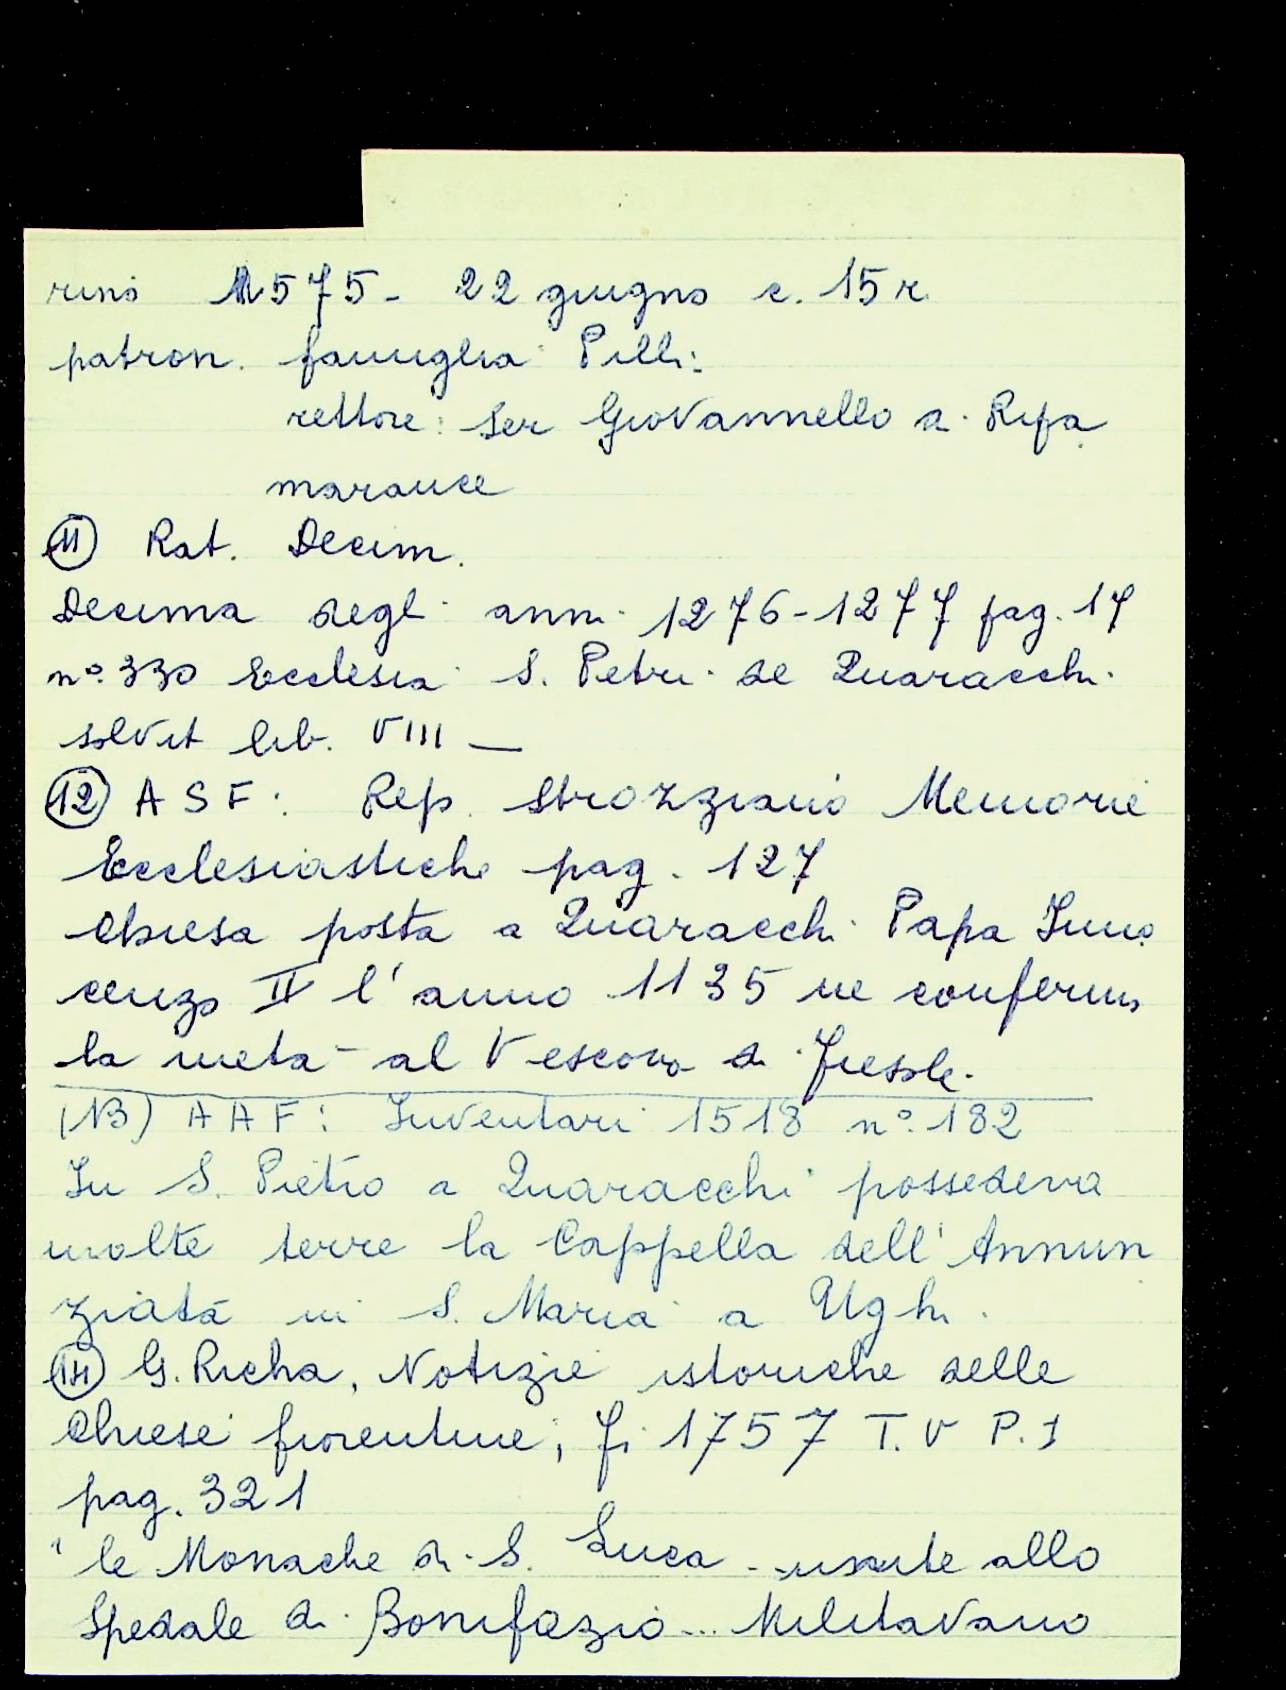 rino 1575 - 22 giugno c. 15 r.
patron. famiglia Pilli:
rettore: Ser Giovannello di Ripa
marance
(11) Rat. Decim.
Decima degli anni 1276-1277 pag. 17
n° 330 Ecclesia S. Petri de Quaracchi
solvit lib. VIII —
(12) A S F: Rep. Strozziano Memorie
Ecclesiastiche pag. 127
Chiesa posta a Quaracchi Papa Inno
cenzo II l'anno 1135 ne confermò
la metà al Vescovo di Fiesole.
(13) A A F: Inventari 1518 n° 182
In S. Pietro a Quaracchi possedeva
molte terre la Cappella dell'Annun
ziata in S. Maria a Ughi.
(14) G. Richa, Notizie istoriche delle
Chiese fiorentine, Fi 1757 T. V P. I
pag. 321
" le Monache di S. Luca - unite allo
Spedale di Bonifazio ... Militavano